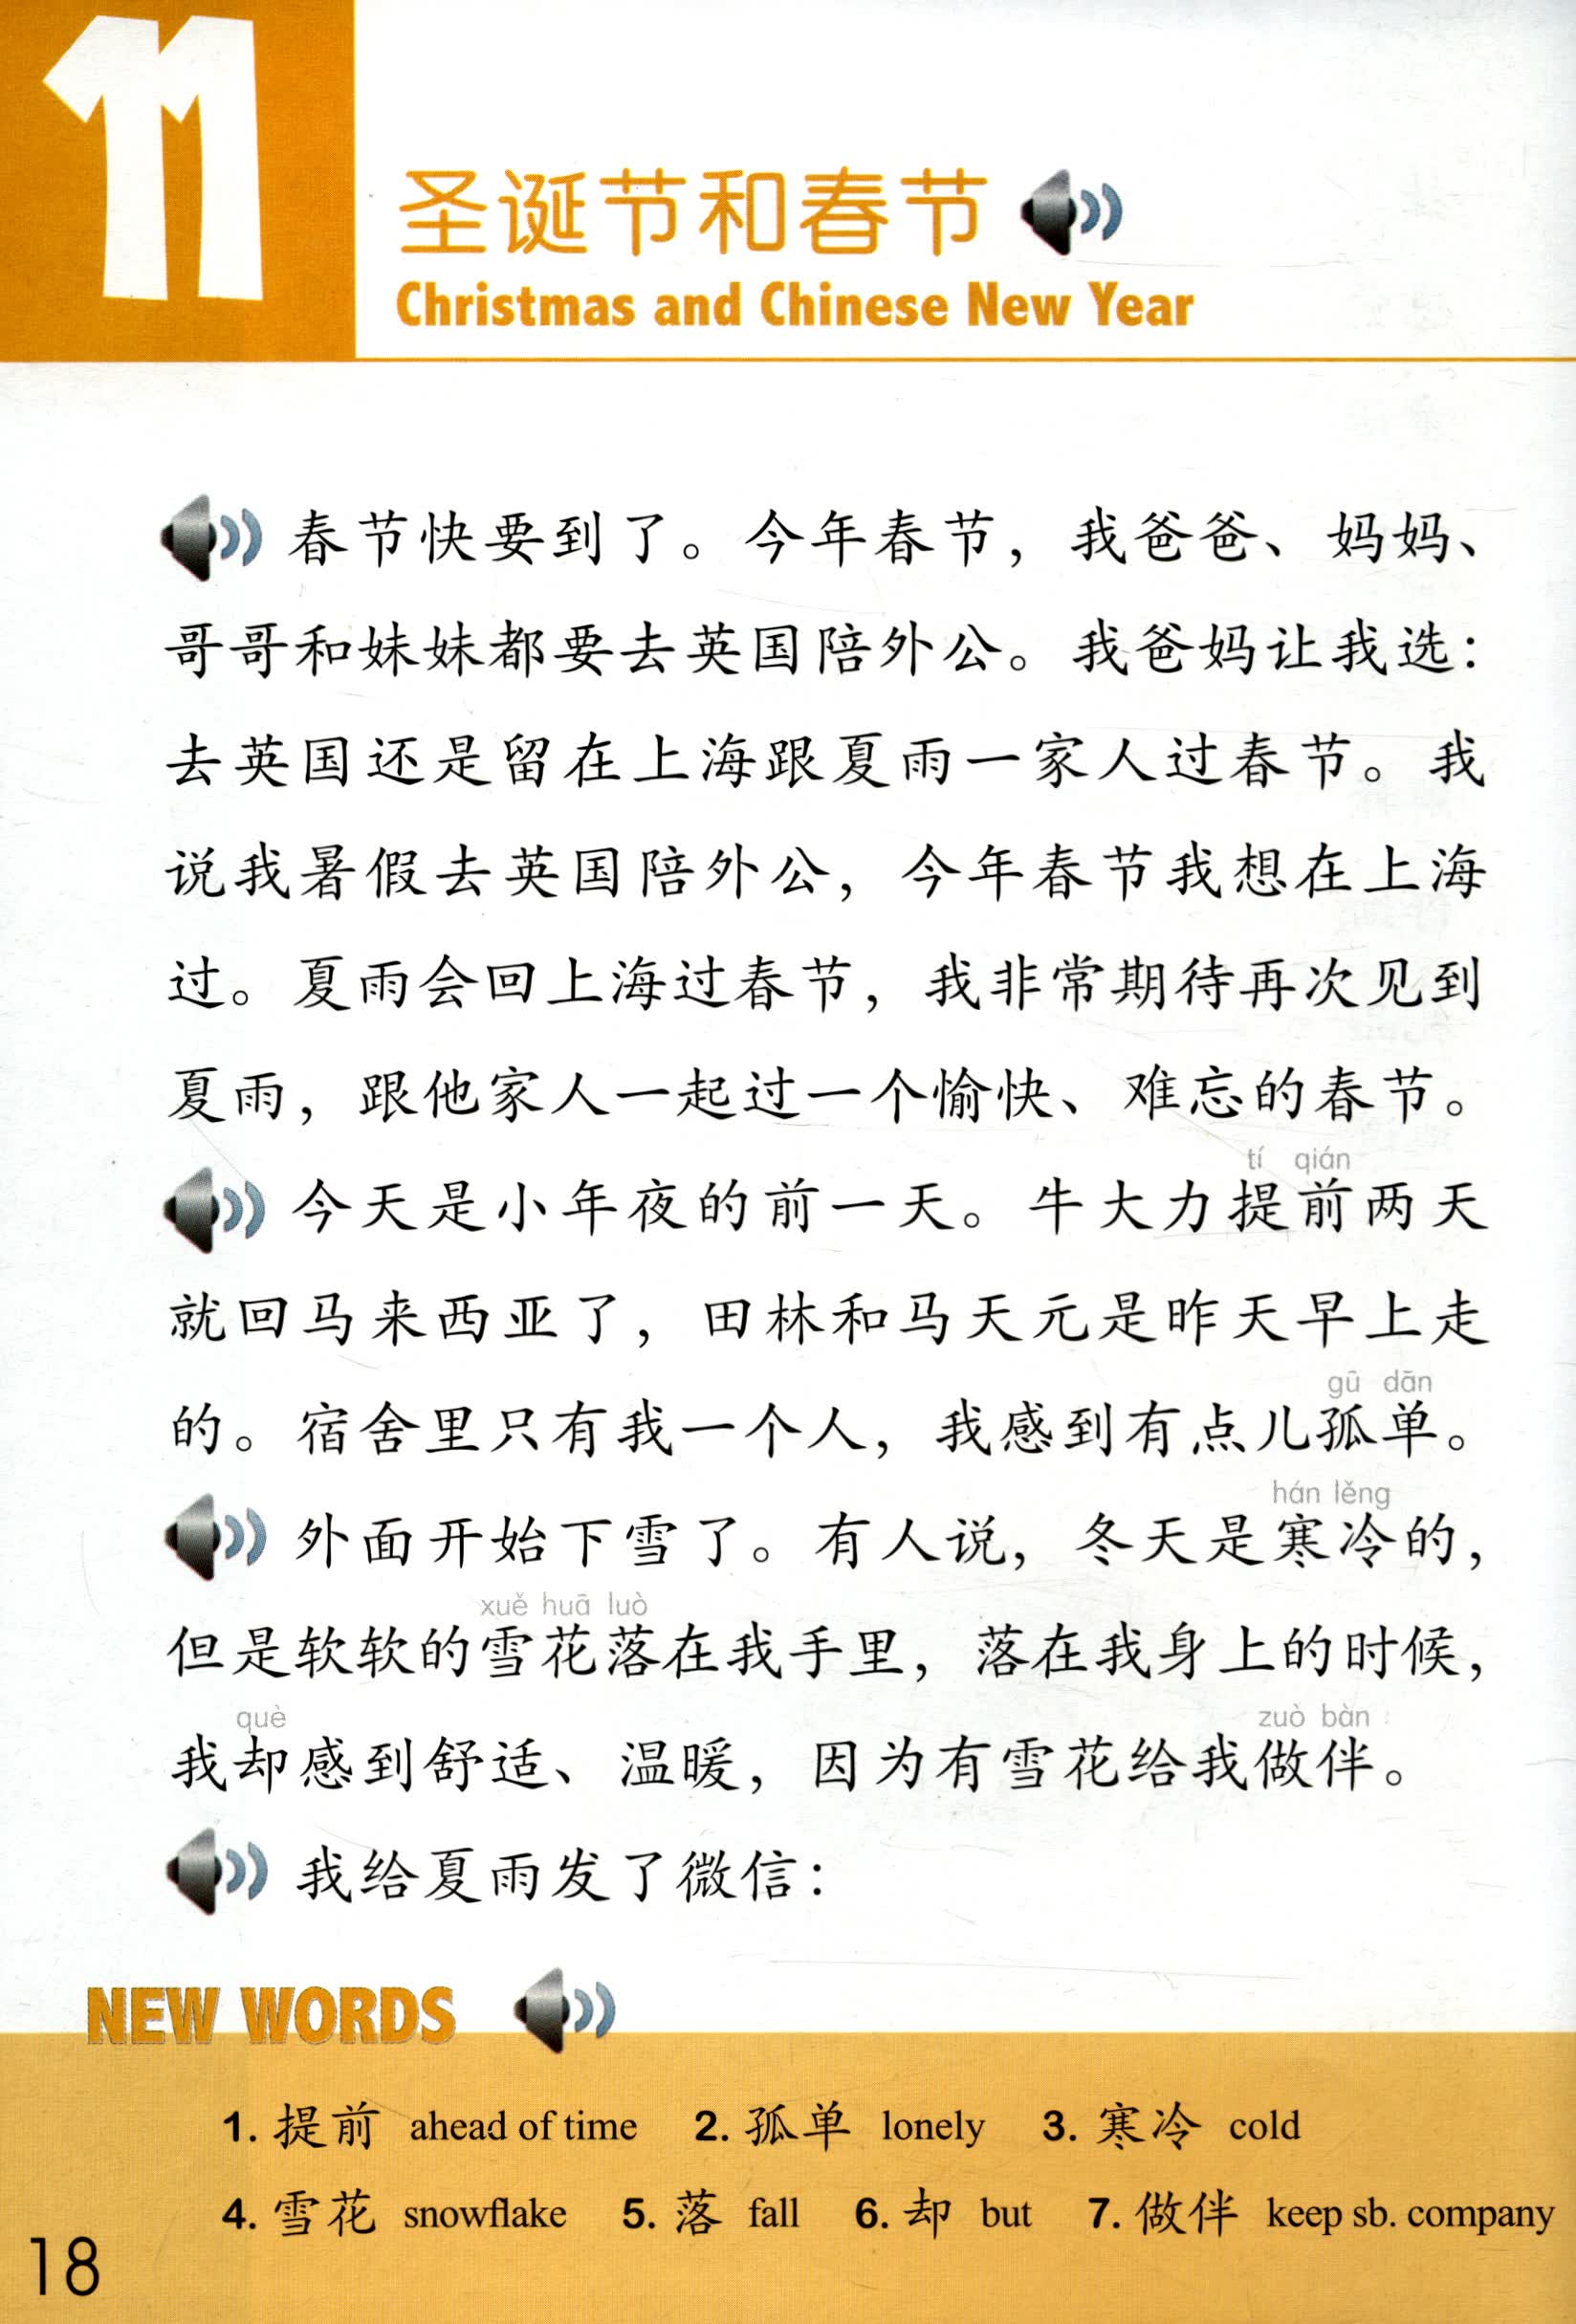 11
圣诞节和春节
Christmas and Chinese New Year
春节快要到了。今年春节，我爸爸、妈妈、
哥哥和妹妹都要去英国陪外公。我爸妈让我选：
去英国还是留在上海跟夏雨一家人过春节。我
说我暑假去英国陪外公，今年春节我想在上海
过。夏雨会回上海过春节，我非常期待再次见到
夏雨，跟他家人一起过一个愉快、难忘的春节。
tí qián
今天是小年夜的前一天。牛大力提前两天
就回马来西亚了，田林和马天元是昨天早上走
gū dān
的。宿舍里只有我一个人，我感到有点儿孤单。
hán lěng
外面开始下雪了。有人说，冬天是寒冷的，
xuě huā luò
但是软软的雪花落在我手里，落在我身上的时候，
què zuò bàn
我却感到舒适、温暖，因为有雪花给我做伴。
我给夏雨发了微信：
NEW WORDS
1. 提前 ahead of time 2. 孤单 lonely 3. 寒冷 cold
4. 雪花 snowflake 5. 落 fall 6. 却 but 7. 做伴 keep sb. company
18